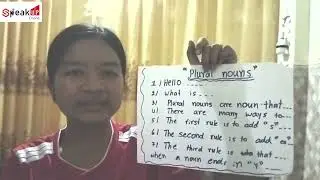 Speak UP
Online
"Plural nouns"
1/ Hello ....
2/ What is ....
3/ Plural nouns are noun that...
4/ There are many ways to...
5/ The first rule is to add "s"...
6/ The second rule is to add "es"...
7/ The third rule is that...
when a noun ends in "y"....